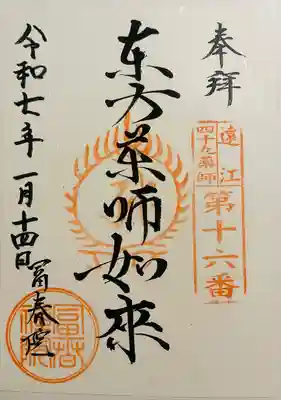 奉拝
遠江
四十九薬師
第十六番
東方薬師如來
令和七年一月十四日
富春院